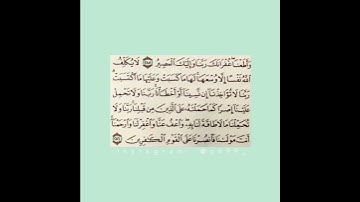 وَأَطَعْنَا غُفْرَانَكَ رَبَّنَا وَإِلَيْكَ ٱلْمَصِيرُ ٢٨٥ لَا يُكَلِّفُ
ٱللَّهُ نَفْسًا إِلَّا وُسْعَهَا لَهَا مَا كَسَبَتْ وَعَلَيْهَا مَا ٱكْتَسَبَتْ
رَبَّنَا لَا تُؤَاخِذْنَآ إِن نَّسِينَآ أَوْ أَخْطَأْنَا رَبَّنَا وَلَا تَحْمِلْ
عَلَيْنَآ إِصْرًا كَمَا حَمَلْتَهُۥ عَلَى ٱلَّذِينَ مِن قَبْلِنَا رَبَّنَا وَلَا
تُحَمِّلْنَا مَا لَا طَاقَةَ لَنَا بِهِۦ وَٱعْفُ عَنَّا وَٱغْفِرْ لَنَا وَٱرْحَمْنَآ
أَنتَ مَوْلَىٰنَا فَٱنصُرْنَا عَلَى ٱلْقَوْمِ ٱلْكَٰفِرِينَ ٢٨٦
instagram